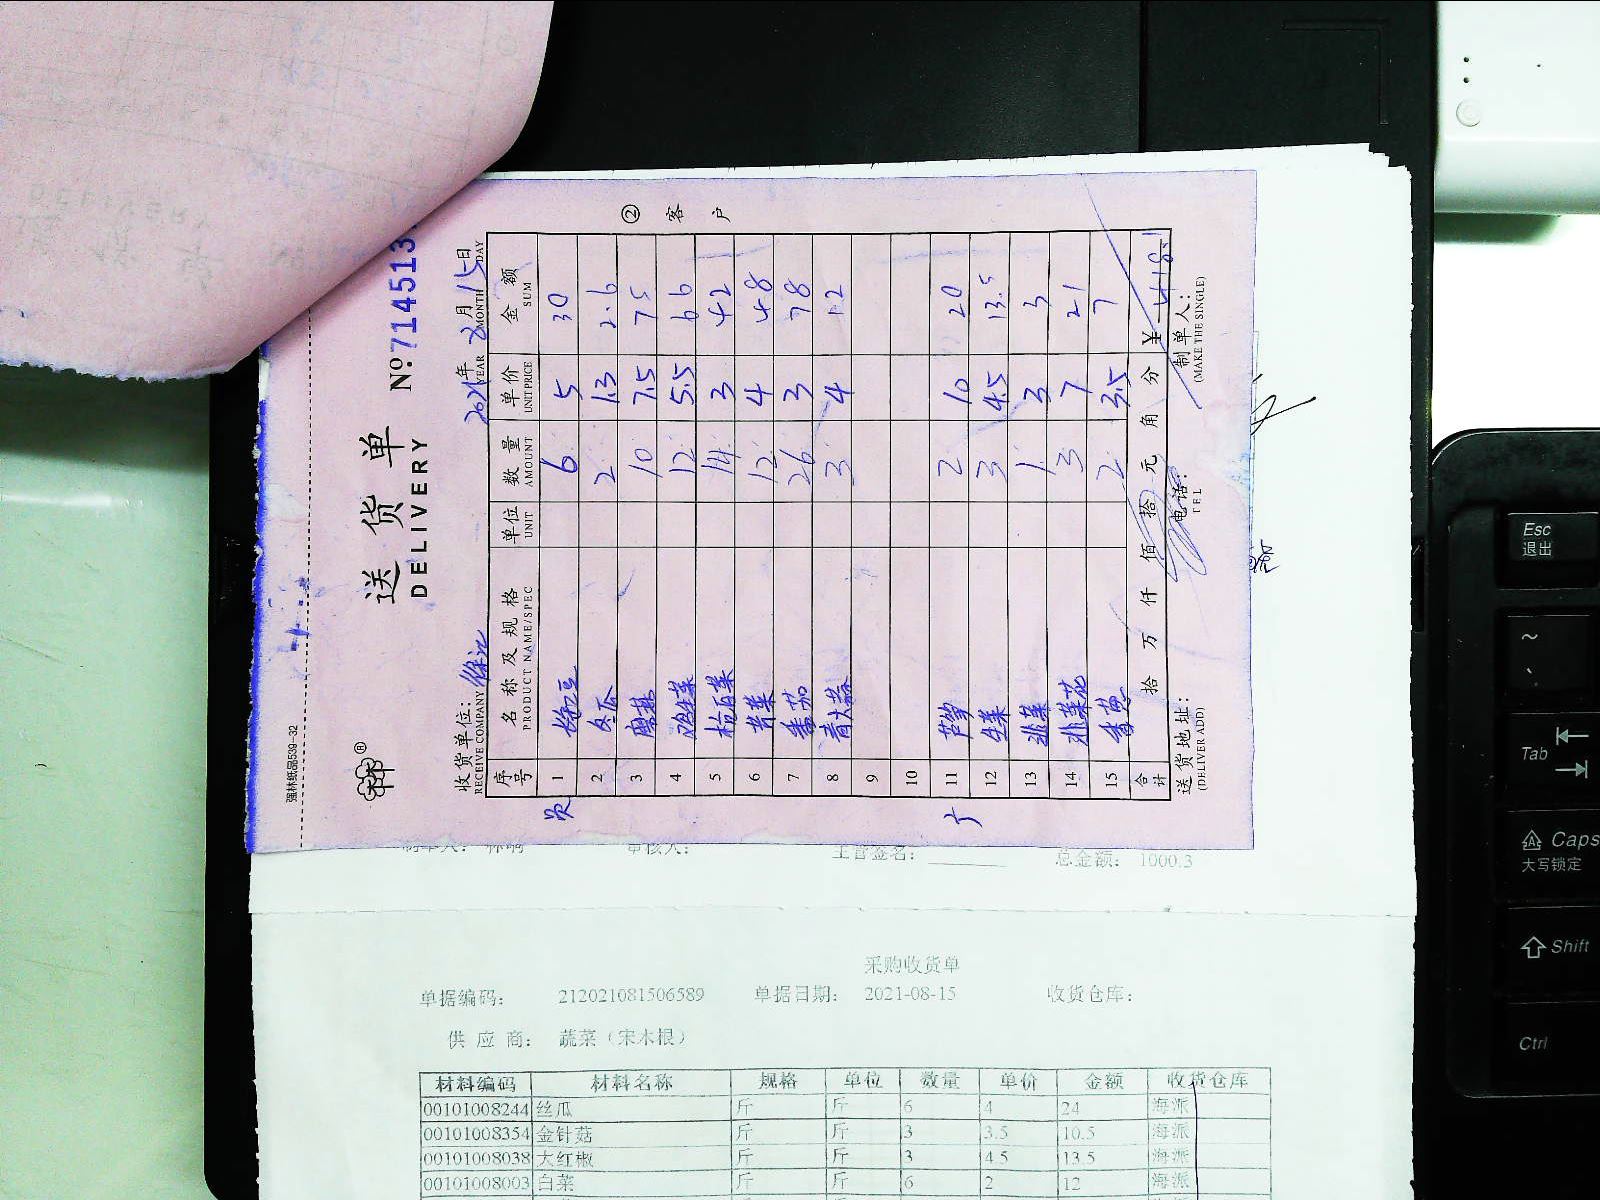 强林纸品539-32
送 货 单
DELIVERY
№ 714513
收货单位：徐记
RECEIVE COMPANY
2021年 8月 15日
YEAR MONTH DAY
② 客 户
序号 名称及规格 单位 数量 单价 金额
PRODUCT NAME/SPEC UNIT AMOUNT UNITPRICE SUM
1 6 5 30
2 冬瓜 2 1.3 2.6
3 蘑菇 10 7.5 75
4 生菜 12 5.5 66
5 白菜 14 3 42
6 青菜 12 4 48
7 番茄 26 3 78
8 青大蒜 3 4 12
9
10
11 芦笋 2 10 20
12 生菜 3 4.5 13.5
13 韭菜 1 3 3
14 韭菜花 3 7 21
15 香葱 2 3.5 7
合计 拾 万 仟 佰 拾 元 角 分 ¥ 418.1
送货地址： 电话： 制单人：
(DELIVER ADD) TEL (MAKE THE SINGLE)
制单人： 审核人： 主管签名： 总金额： 1000.3
采购收货单
单据编码： 212021081506589 单据日期： 2021-08-15 收货仓库：
供 应 商： 蔬菜（宋木根）
材料编码 材料名称 规格 单位 数量 单价 金额 收货仓库
00101008244 丝瓜 斤 斤 6 4 24 海派
00101008354 金针菇 斤 斤 3 3.5 10.5 海派
00101008038 大红椒 斤 斤 3 4.5 13.5 海派
00101008003 白菜 斤 斤 6 2 12 海派
Esc
退出
~
Tab
Caps
大写锁定
Shift
Ctrl